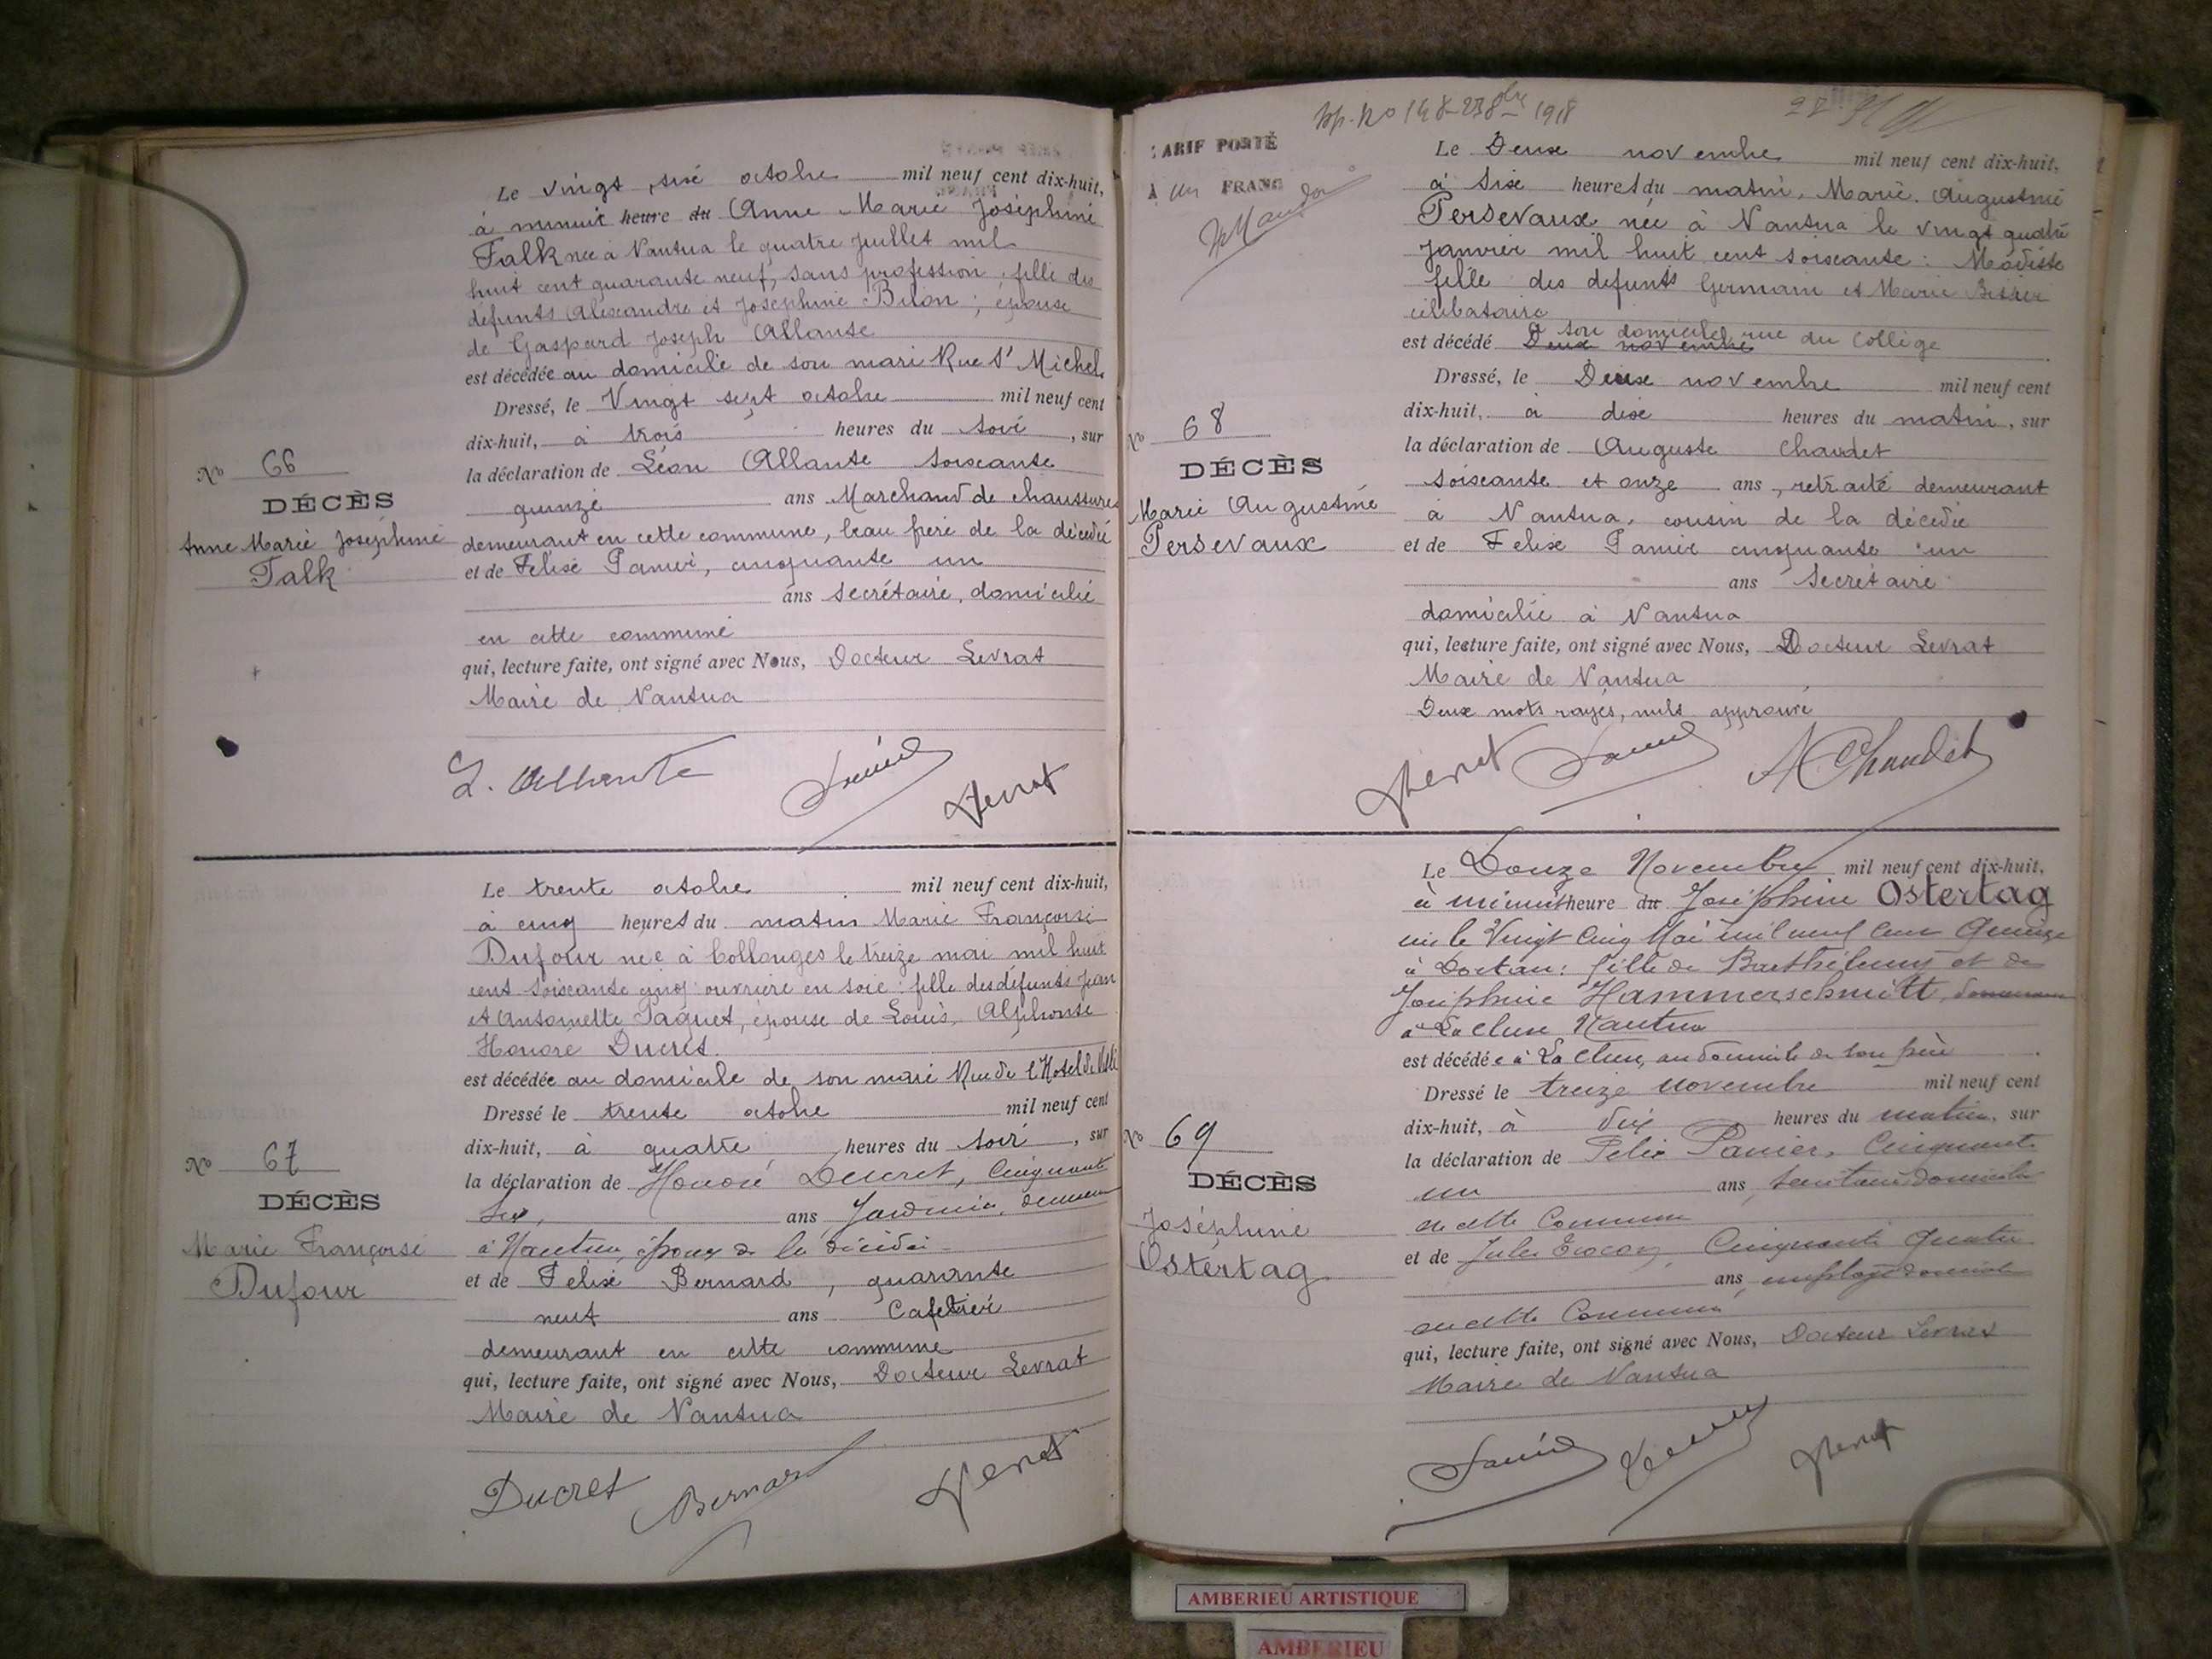 Le vingt six octobre mil neuf cent dix-huit,
à minuit heure du Anne Marie Joséphine
Falk née à Nantua le quatre juillet mil
huit cent quarante neuf, sans profession, fille des
défunts Alexandre et Joséphine Bilon ; épouse
de Gaspard Joseph Allante
est décédée au domicile de son mari Rue St Michel
Dressé, le Vingt sept octobre mil neuf cent
dix-huit, à trois heures du soir, sur
la déclaration de Léon Allante soixante
quinze ans Marchand de chaussures
demeurant en cette commune, beau frère de la décédée
et de Félix Panier, cinquante un
ans secrétaire, domicilié
en cette commune
qui, lecture faite, ont signé avec Nous, Docteur Levrat
Maire de Nantua
No 66
DÉCÈS
Anne Marie Joséphine
Falk
L. Allante Panier Levrat
Le trente octobre mil neuf cent dix-huit,
à cinq heures du matin Marie Françoise
Dufour née à Collonges le treize mai mil huit
cent soixante cinq ouvrière en soie : fille des défunts Jean
et Antoinette Paquet, épouse de Louis, Alphonse
Honoré Ducret.
est décédée au domicile de son mari Rue de l'Hotel de Ville
Dressé le trente octobre mil neuf cent
dix-huit, à quatre heures du soir, sur
la déclaration de Honoré Ducret, Cinquante
six, ans Jardinier,
à Nantua, époux de la décédée
et de Félix Bernard, quarante
neuf ans Cafetier
demeurant en cette commune
qui, lecture faite, ont signé avec Nous, Docteur Levrat
Maire de Nantua
No 67
DÉCÈS
Marie Françoise
Dufour
Ducret Bernard Levrat
1918
TARIF PORTÉ
À un FRANC
Le Deux novembre mil neuf cent dix-huit,
à six heures du matin, Marie Augustine
Persevaux née à Nantua le vingt quatre
janvier mil huit cent soixante : Modiste
fille des defunts Germain et Marie
célibataire
à son domicile, rue du Collège
est décédé Deux novembre
Dressé, le Deux novembre mil neuf cent
dix-huit, à dix heures du matin, sur
la déclaration de Auguste Chaudet
soixante et onze ans, retraité demeurant
à Nantua, cousin de la décédée
et de Felix Panier cinquante un
ans Secrétaire
domicilié à Nantua
qui, lecture faite, ont signé avec Nous, Docteur Levrat
Maire de Nantua
Deux mots rayés, nuls approuvé
No 68
DÉCÈS
Marie Augustine
Persevaux
Levrat Panier A Chaudet
Le Douze Novembre mil neuf cent dix-huit,
à minuit heure du Joséphine Ostertag
née le Vingt Cinq Mai mil neuf cent Quinze
à Dortan : fille de Barthélemy et de
Joséphine Hammerschmitt,
à La Cluse Nantua
est décédée à La Cluse, au domicile de son père
Dressé le treize novembre mil neuf cent
dix-huit, à dix heures du matin, sur
la déclaration de Felix Panier, Cinquante
un ans, secrétaire domicilié
en cette Commune
et de Jules Cinquante Quatre
ans, employé domicilié
en cette Commune
qui, lecture faite, ont signé avec Nous, Docteur Levrat
Maire de Nantua
No 69
DÉCÈS
Joséphine
Ostertag
Panier Levrat
AMBERIEU ARTISTIQUE
AMBERIEU